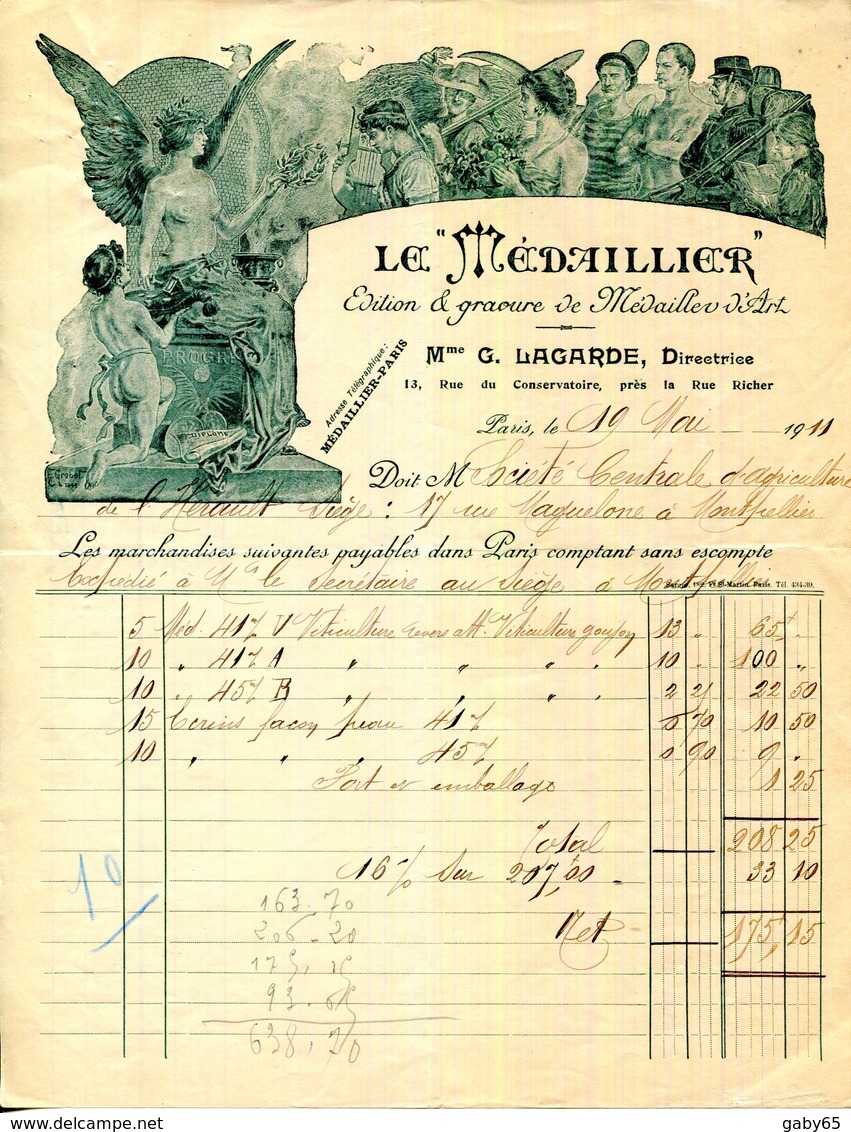 PROGRE
DIPLOME
LE "MÉDAILLIER"
Edition & gravure de Médailles d'Art
Mme G. LAGARDE, Directrice
13, Rue du Conservatoire, près la Rue Richer
Adresse Télégraphique:
MÉDAILLIER-PARIS
Paris, le 19 Mai 1911
Doit M Société Centrale d'agriculture
de l'Hérault Siège: 17 rue Maguelone à Montpellier
Les marchandises suivantes payables dans Paris comptant sans escompte
Expédié à Mr le Secrétaire au Siège à Montpellier
St Martin. Paris. Tél. 434-39.
5 Méd. 417 V Viticulture revers att. Viticulture goujon 13 " 65 "
10 " 417 A " " " " 10 " 100 "
10 " 457 B " " " " 2 25 22 50
15 Ecrins façon peau 417 0 70 10 50
10 " " " 457 0 90 9 "
Port et emballage 1 25
Total 208 25
16 % sur 207,00 33 10
Net 175,15
10
163.70
206-20
175.15
93.65
638,70
gaby65